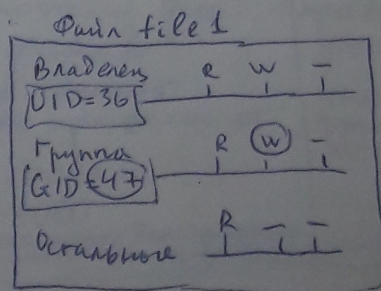 Файл file1
Владелец R W —
UID=36
Группа R W —
GID=47
Остальные R — —